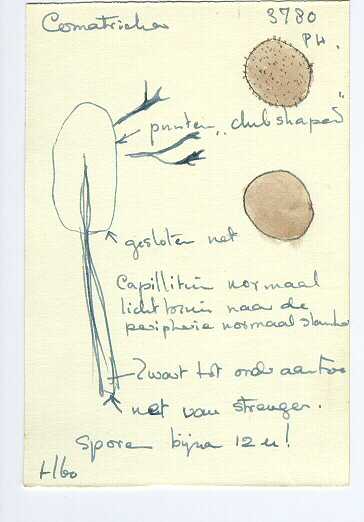 Comatricha
3780
PH.
punten „club shaped"
gesloten net
Capillitium normaal
lichtbruin naar de
peripherie normaal
Zwart tot onder aan toe
net van strengen.
Sporen bijna 12 u!